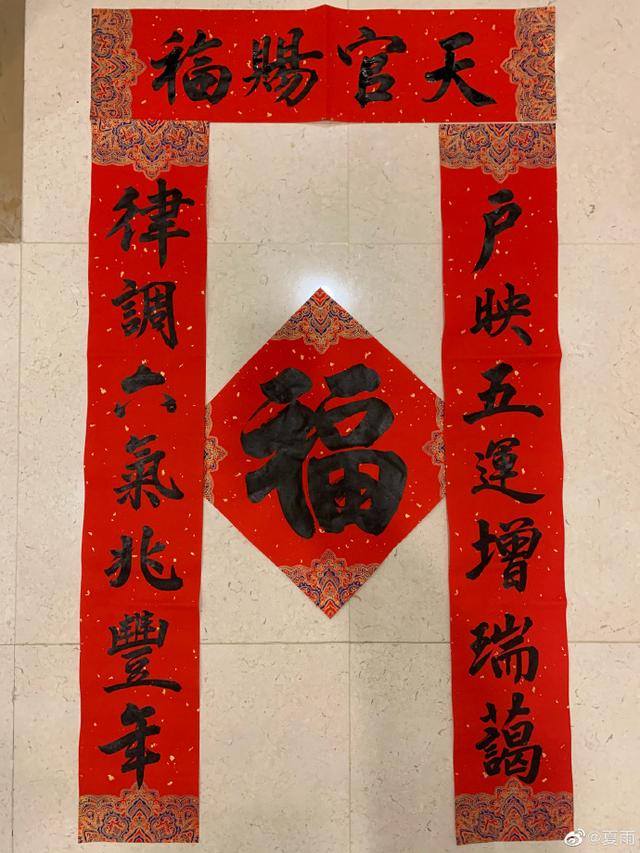 天官賜福
户映五運增瑞藹
律調六氣兆豐年
福
@夏雨